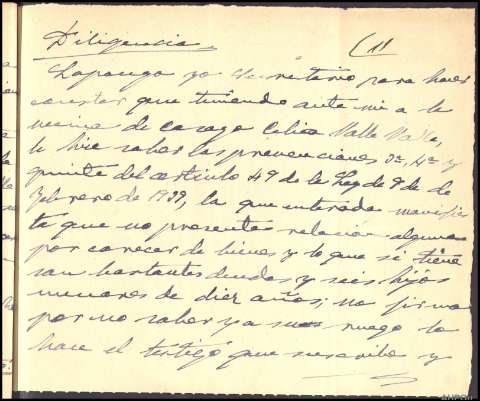 Diligencia. (1)
La pongo yo Secretario para hacer
constar que teniendo ante mi a la
vecina de Casazo Celica Valle Valle,
le hice saber las prevenciones 3ª, 4ª y
quinta del articulo 49 de la Ley de 9 de
Febrero de 1939, la que enterada manifies
ta que no presenta relación alguna
por carecer de bienes y lo que si tiene
son bastantes deudas y seis hijos
menores de diez años; no firma
por no saber y a su ruego lo
hace el testigo que suscribe y